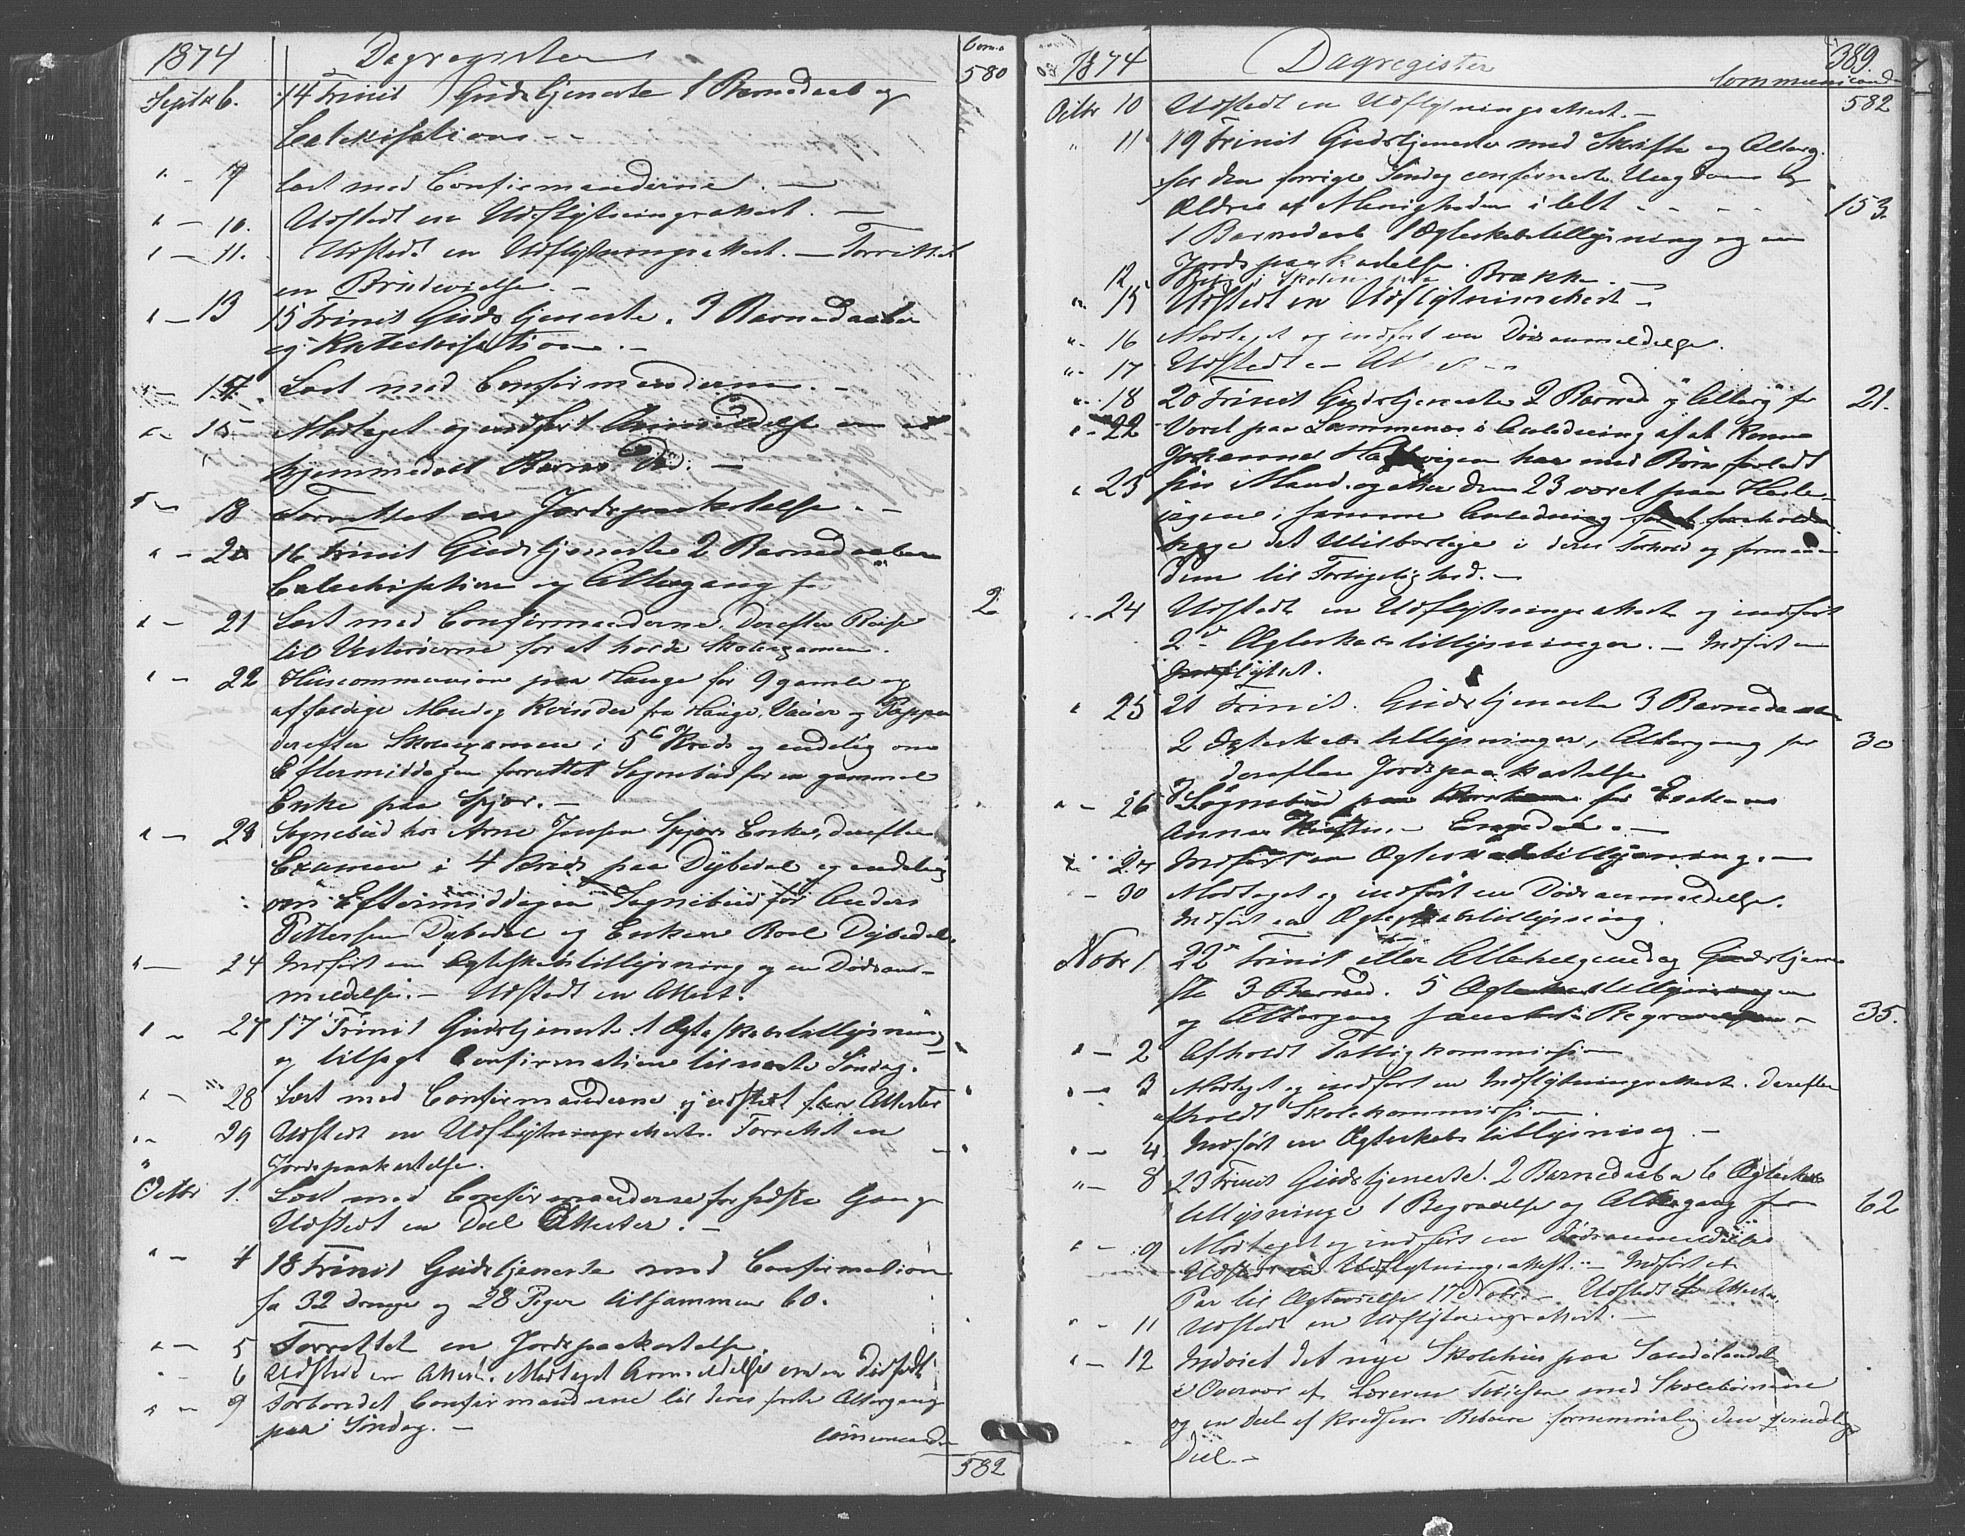 1874 Dagregister Com. 580
Septbr 6. 14 Trinit Gudstjeneste 1 Barnedaab og
Catekisation. -
" - 7 Læst med Confirmanderne. -
" - 10. Udstedt en Udflytningsattest. -
" - 11. Udstedt en Udflytningsattest. - Forrettet
en Brudevielse. -
" - 13 15 Trinit Gudstjeneste. 3 Barnedaabe
og Katekisation. -
" - 14. Læst med Confirmanderne. -
" - 15 Modtaget og indført Anmeldelse om et
hjemmedøbt Barns Død. -
" - 18 Forrettet en Jordspaakastelse. -
" - 20 16 Trinit Gudstjeneste 2 Barnedaaben
Catechisation og Altergang for 2
" - 21 Læst med Confirmanderne. Derefter Reise
til Vesterøerne for at holde Skoleexamen.
" - 22 Huscommunion paa Hauge for 9 gamle og
affældige Mænd og Kvinder fra Hauge, og
derefter Skoleexamen i 5 Kreds og endelig om
Eftermiddagen forrettet Sognebud for en gammel
Enke paa Spjær. -
" - 23 Sognebud hos Arne Spjær Enke, derefter
Examen i 4 Kreds paa Dybedal og endelig
om Eftermiddagen Sognebud for Anders
Pettersen Dybedal og Enken Dybedal.
" - 24 Indført en Ægteskabstillysning og en Dødsan-
meldelse. - Udstedt en Attest.
" - 27 17 Trinit Gudstjeneste 1 Ægteskabstillysning
og tilsagt Confirmation til næste Søndag.
" - 28 Læst med Confirmanderne og udstedt flere Attester
" - 29 Udstedt en Udflytningsattest. Forrettet en
" Jordspaakastelse.
Octbr 1. Læst med Confirmanderne for sidste Gang
Udstedt en Deel Attester. -
" - 4 18 Trinit Gudstjeneste med Confirmation
for 32 Drenge og 28 Piger tilsammen 60.
" - 5 Forrettet en Jordspaakastelse.
" - 6 Udstedt en Attest. Modtaget Anmeldelse om en Dødfødt
" - 9 Forberedet Confirmanderne til deres første Altergang
paa Søndag. -
582
1874 Dagregister 389
Communicander
Octbr 10 Udstedt en Udflytningsattest. - 582
" 11 19 Trinit Gudstjeneste med Skrifte og Alterg.
for den forrige Søndag confirmerte Ungdom og
Ældre af Menigheden i alt - - - 153.
1 Barnedaab 1 Ægteskabstillysning og en
Jordspaakastelse.
12 Skolen Brække. -
" 15 Udstedt en Udflytningsattest -
" 16 Modtaget og indført en Dødsanmeldelse.
" 17 Udstedt en
" 18 20 Trinit Gudstjeneste 2 Barned og Alterg for 21.
" 22 Været paa i Anledning af at Konen
har med Børn forladt
" 23 sin Mand. og atter den 23 været paa
i samme Anledning for at foreholde
begge det Utilbørlige i deres Forhold og formane
dem til Fordragelighed. -
" 24 Udstedt en Udflytningsattest og indført
2 Ægteskabstillysninger. - Indført en
Indflyttet.
" 25 21 Trinit. Gudstjeneste 3 Barnedaabe
2 Ægteskabstillysninger, Altergang for 30
derefter Jordspaakastelse
" - 26 Sognebud paa for Enken
Anne
" 27 Indført en Ægteskabstillysning. -
- 30 Modtaget og indført en Dødsanmeldelse.
Indført en Ægteskabstillysning.
Nobr 1 22 Trinit eller Allehelgensdag Gudstjene-
ste 3 Barned. 5 Ægteskabstillysninger
og Altergang samt Begravelse - 35.
" - 2 Afholdt Fattigkommission
" - 3 Modtaget og indført en Indflytningsattest. Derefter
afholdt Skolekommission.
" - 4 Indført en Ægteskabstillysning. -
" - 8 23 Trinit Gudstjeneste. 2 Barnedaabe 6 Ægteskabs
tillysninge 1 Begravelse og Altergang for 62
" - 9 Modtaget og indført en Dødsanmeldelse
Udstedt en Udflytningsattest. - Indført et
Par til Ægtevielse 17 Nobr. - Udstedt Attester
" - 11 Udstedt en Udflytningsattest. -
" - 12 Indviet det nye Skolehus paa
i Overvær af Læreren med Skolebørnene
og en Deel af Kredsens Beboere fornemmelig den qvindelige
Deel. -